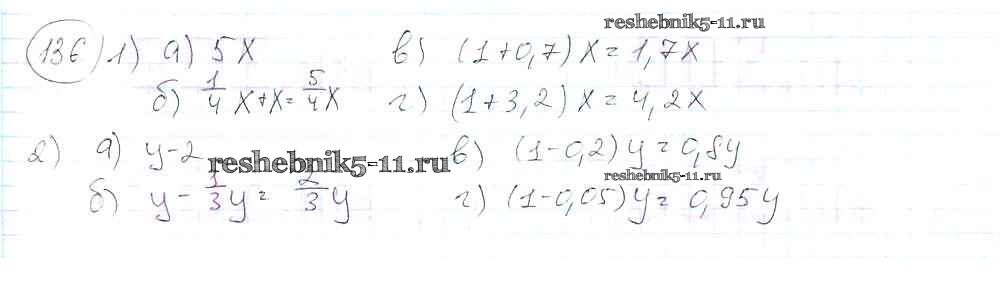 reshebnik5-11.ru
136) 1) а) 5x в) (1+0,7)x=1,7x
б) 1/4 x+x=5/4 x г) (1+3,2)x=4,2x
2) а) y-2 в) (1-0,2)y=0,8y
reshebnik5-11.ru
reshebnik5-11.ru
б) y-1/3 y=2/3 y г) (1-0,05)y=0,95y